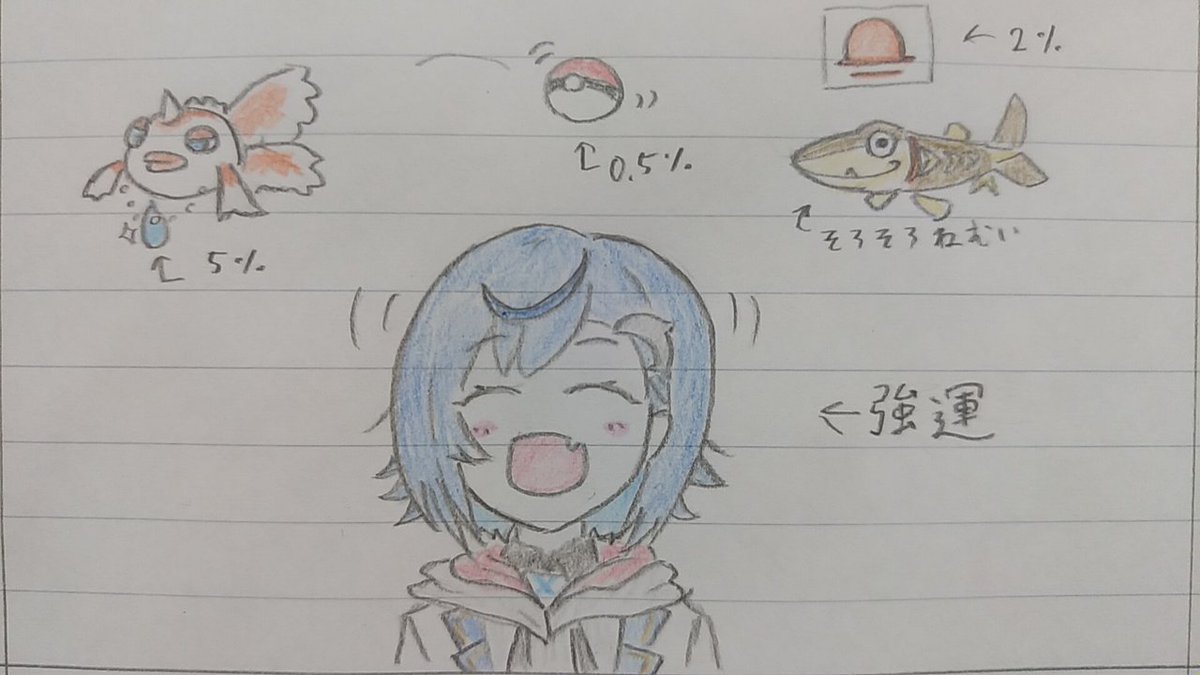 ←2%
↑0.5%
そろそろねむい
↑5%
←強運